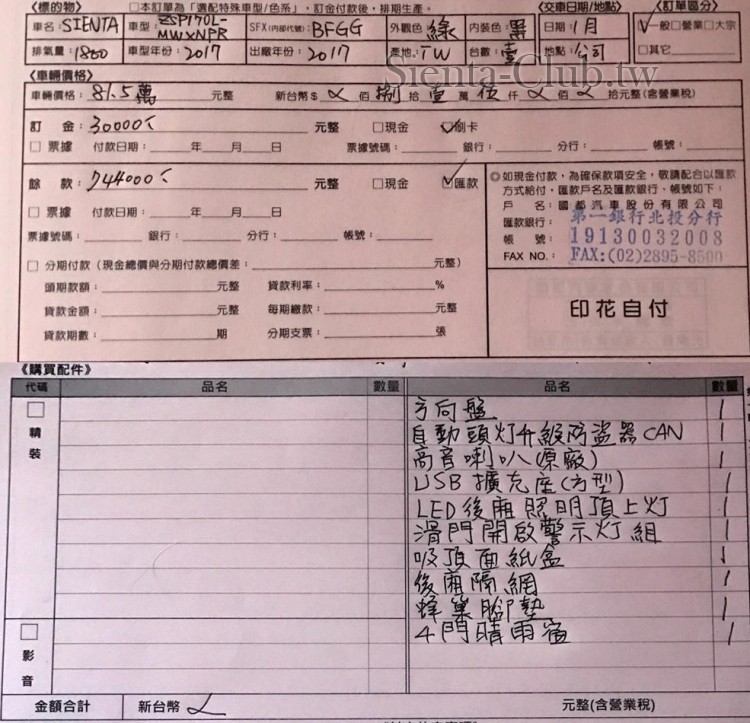 《標的物》 □本訂單為「選配特殊車型/色系」,訂金付款後,排期生產。 《交車日期/地點》 《訂單區分》
車名:SIENTA 車型:ZSP170L-MWXNPR SFX(內部代號):BFGG 外觀色:綠 內裝色:黑 日期:1月 ☑一般□營業□大宗
排氣量:1800 車型年份:2017 出廠年份:2017 產地:TW 台數:壹 地點:公司 □其它
Sienta-Club.tw
《車輛價格》
車輛價格:81.5萬 元整 新台幣$ 佰 捌 拾 壹 萬 伍 仟 佰 拾元整(含營業稅)
訂 金:30000 元整 □現金 ☑刷卡
□票據 付款日期: 年 月 日 票據號碼: 銀行: 分行: 帳號:
餘 款:744000 元整 □現金 ☑匯款
□票據 付款日期: 年 月 日
票據號碼: 銀行: 分行: 帳號:
□分期付款(現金總價與分期付款總價差: 元整)
頭期款額: 元整 貸款利率: %
貸款金額: 元整 每期繳款: 元整
貸款期數: 期 分期支票: 張
◎如現金付款,為確保款項安全,敬請配合以匯款
方式給付,匯款戶名及匯款銀行、帳號如下:
戶 名:國都汽車股份有限公司
匯款銀行:第一銀行北投分行
帳 號:19130032008
FAX NO.:FAX:(02)2895-8500
印花自付
《購買配件》
代碼 品名 數量 品名 數量
□精裝
方向盤 1
自動頭灯升級防盜器CAN 1
高音喇叭(原廠) 1
USB擴充座(方型) 1
LED後廂照明頂上灯 1
滑門開啟警示灯組 1
吸頂面紙盒 1
後廂隔網 1
蜂巢腳墊 1
4門晴雨窗 1
□影音
金額合計 新台幣 元整(含營業稅)